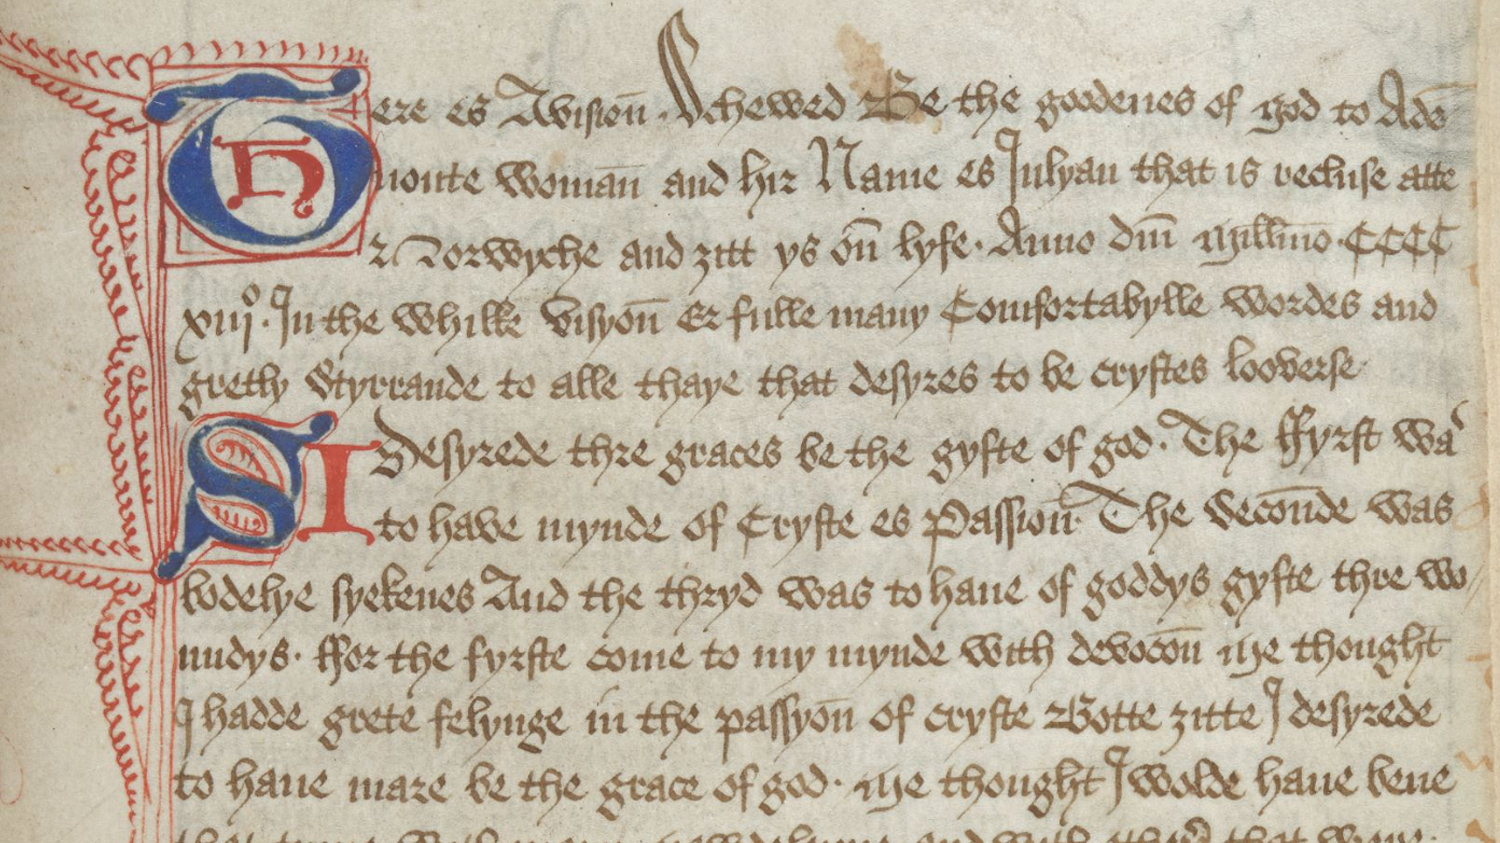 Here es Avisioū · Schewed Be the goodenes of god to Adē
uoute womāū and hir Name es Julyan that is recluse atte
r Norwyche and ȝitt ys oñ lyfe · Anno dñi millīmo · CCCC
xiijº · In the whilke Visyoñ Er fulle many Comfortabylle wordes and
gretly Styrrande to alle thaye that desyres to be crystes looverse ·
I Desyrede thre graces be the gyfte of god · The ffyrst wa
to have mynde of Cryste es Passioñ · The Secoñde was
bodelye syekenes And the thryd was to haue of goddys gyfte thre wo
undys · ffor the fyrste come to my mynde with devocoñ me thought
I hadde grete felynge in the passyoñ of cryste Botte ȝitte I desyrede
to haue mare be the grace of god · me thought I wolde haue bene